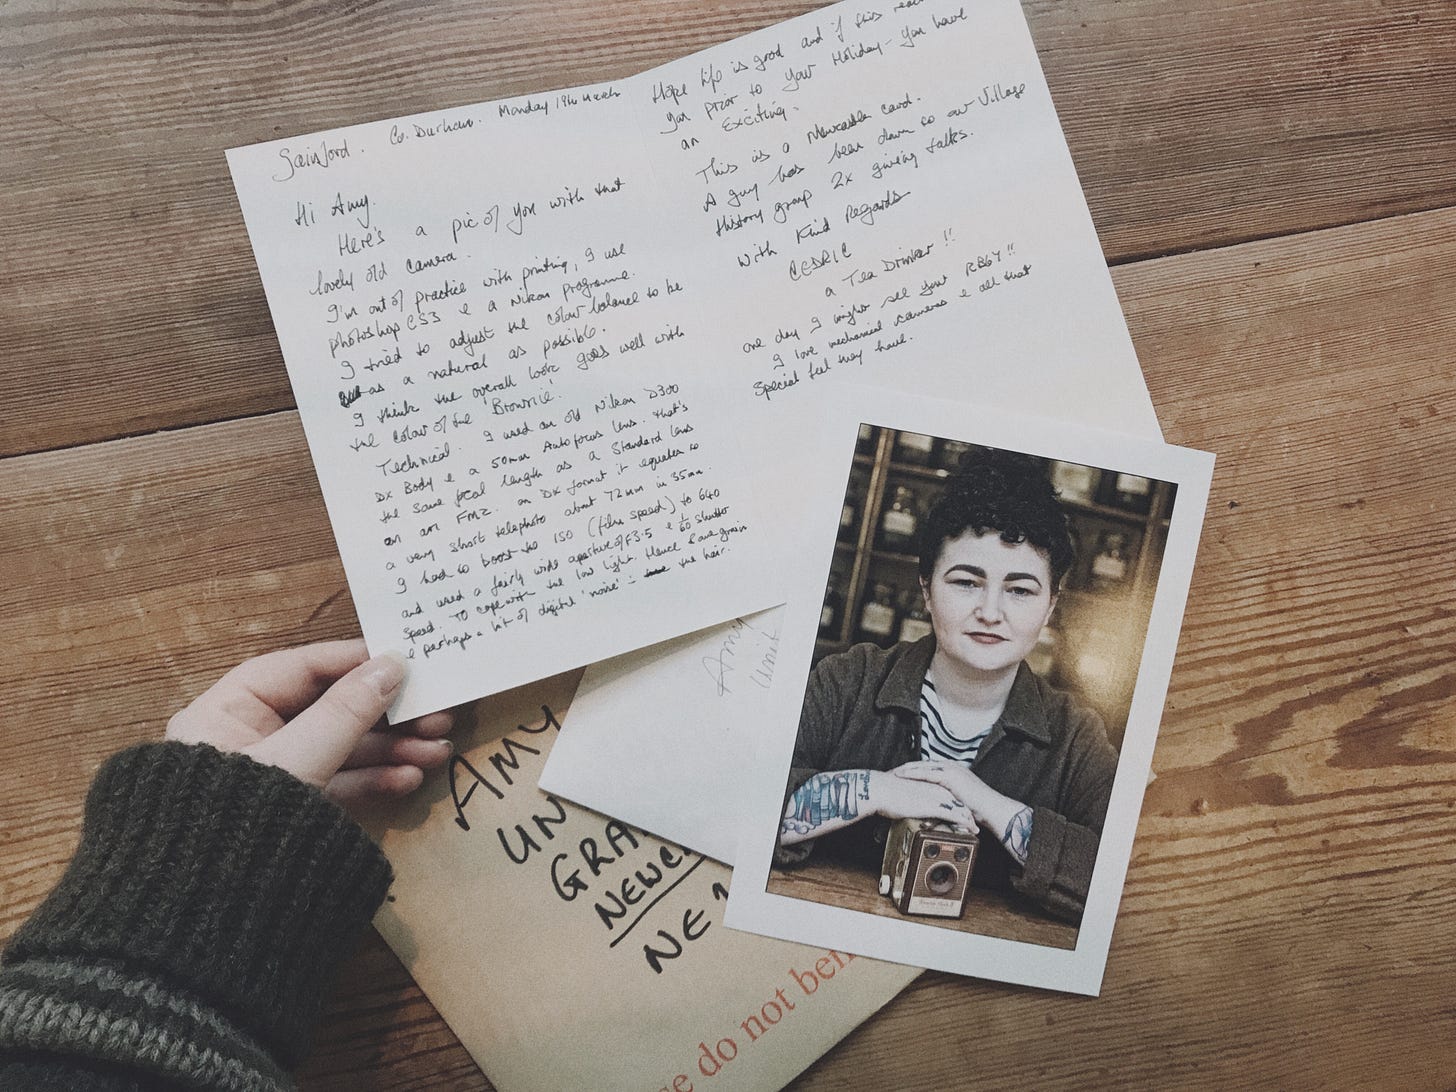 Gainford. Co. Durham. Monday 19th March
Hi Amy.
Here's a pic of you with that
lovely old camera.
I'm out of practice with printing, I use
photoshop CS3 & a Nikon programme.
I tried to adjust the colour balance to be
as a natural as possible.
I think the overall look goes well with
the colour of the 'Brownie'.
Technical. I used an old Nikon D300
DX Body & a 50mm Autofocus lens. that's
the same focal length as a Standard lens
on an FM2. on DX format it equates to
a very short telephoto about 72mm in 35mm.
I had to boost to ISO (film speed) to 640
and used a fairly wide aperture of F3.5 & 1/60 shutter
speed. To cope with the low light. Hence some grain
& perhaps a bit of digital 'noise' in the hair.
Hope life is good and if this
you prior to your Holiday - you have
an exciting.
This is a Newcastle card.
A guy has been down to our Village
History group 2x giving talks.
With Kind Regards
CEDRIC
a Tea Drinker !!
one day I might see your RB67 !!
I love mechanical cameras & all that
special feel they have.
Amy
Unit
AMY
UN
GRA
NEWC
NE1
se do not ben